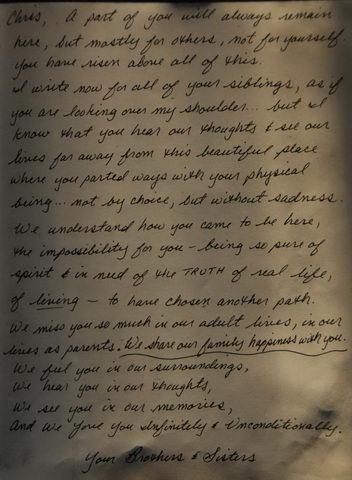 Chris, A part of you will always remain
here, but mostly for others, not for yourself.
You have risen above all of this.
I write now for all of your siblings, as if
you are looking over my shoulder... but I
know that you hear our thoughts & see our
lives far away from this beautiful place
where you parted ways with your physical
being... not by choice, but without sadness.
We understand how you came to be here,
the impossibility for you – being so pure of
spirit & in need of the TRUTH of real life,
of living – to have chosen another path.
We miss you so much in our adult lives, in our
lives as parents. We share our family happiness with you.
We feel you in our surroundings,
We hear you in our thoughts,
We see you in our memories,
And We Love You Infinitely & Unconditionally.
Your Brothers & Sisters